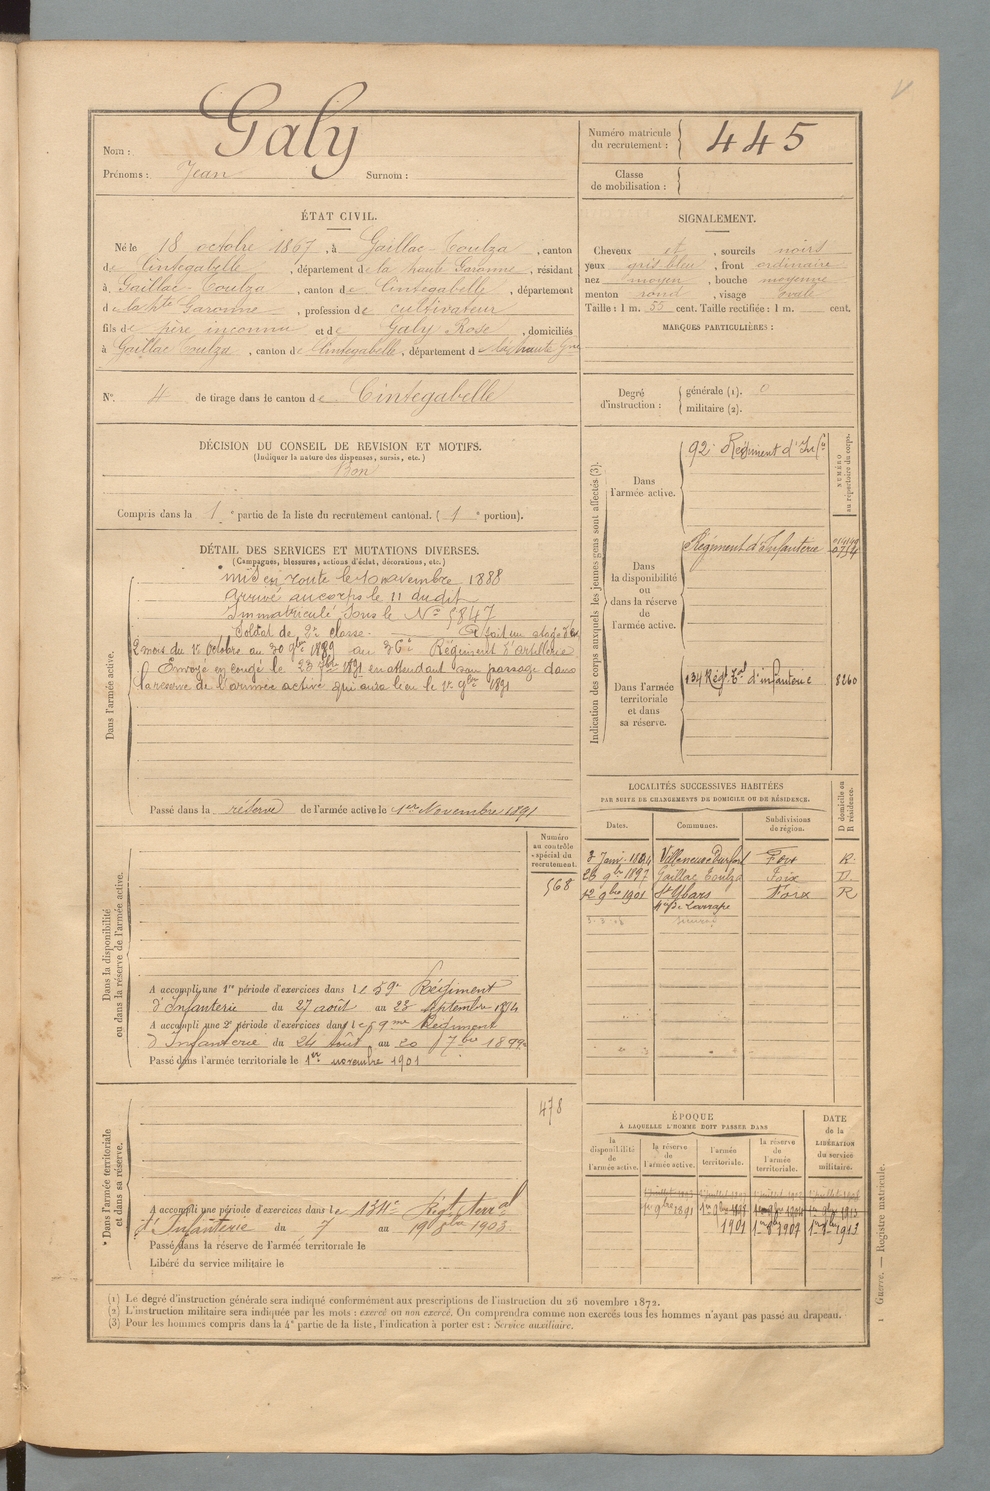 Nom : Galy
Prénoms : Jean Surnom :
Numéro matricule du recrutement : 445
Classe de mobilisation :
ÉTAT CIVIL.
Né le 18 octobre 1867, à Gaillac-Toulza, canton
de Cintegabelle, département de la haute Garonne, résidant
à Gaillac-Toulza, canton de Cintegabelle, département
de la hte Garonne, profession de cultivateur
fils de père inconnu et de Galy Rose, domiciliés
à Gaillac Toulza, canton de Cintegabelle, département d la haute Gne
N° 4 de tirage dans le canton de Cintegabelle
SIGNALEMENT.
Cheveux et, sourcils noirs
yeux gris bleu, front ordinaire
nez moyen, bouche moyenne
menton rond, visage ovale
Taille : 1 m. 55 cent. Taille rectifiée : 1 m. cent.
MARQUES PARTICULIÈRES :
Degré d'instruction : générale (1). 0
militaire (2).
DÉCISION DU CONSEIL DE REVISION ET MOTIFS.
(Indiquer la nature des dispenses, sursis, etc.)
Bon
Compris dans la 1e partie de la liste du recrutement cantonal. (1e portion).
DÉTAIL DES SERVICES ET MUTATIONS DIVERSES.
(Campagnes, blessures, actions d'éclat, décorations, etc.)
Dans l'armée active.
mis en route le 10 novembre 1888
Arrivé au corps le 11 du dit
Immatriculé sous le N° 5847
Soldat de 2e classe. A fait un stage de
2 mois du 1er Octobre au 30 9bre 1889 au 36e Régiment d'artillerie
Envoyé en congé le 23 7bre 1891 en attendant son passage dans
la réserve de l'armée active qui aura lieu le 1er 9bre 1891
Passé dans la réserve de l'armée active le 1er Novembre 1891
Indication des corps auxquels les jeunes gens sont affectés (3).
NUMÉRO au répertoire du corps.
Dans l'armée active.
92e Régiment d'Infie
Dans la disponibilité ou dans la réserve de l'armée active.
Régiment d'Infanterie
Dans l'armée territoriale et dans sa réserve.
134 Régt Tal d'infanterie 8260
LOCALITÉS SUCCESSIVES HABITÉES
PAR SUITE DE CHANGEMENTS DE DOMICILE OU DE RÉSIDENCE.
Dates. Communes. Subdivisions de région. D domicile ou R résidence.
3 Janv. 1894 Villeneuve Durfort Foix R.
23 9bre 1897 Gaillac Toulza Foix D
12 9bre 1901 St Ybars Foix R
Dans la disponibilité ou dans la réserve de l'armée active.
Numéro au contrôle spécial du recrutement.
568
A accompli une 1re période d'exercices dans le 59e Régiment
d'Infanterie du 27 août au 23 Septembre 1894
A accompli une 2e période d'exercices dans le 59me Régiment
d'Infanterie du 24 août au 20 7bre 1899
Passé dans l'armée territoriale le 1er novembre 1901
Dans l'armée territoriale et dans sa réserve.
478
A accompli une période d'exercices dans le 134e Régt terral
d'Infanterie du 7 au 19 9bre 1903
Passé dans la réserve de l'armée territoriale le
Libéré du service militaire le
ÉPOQUE
À LAQUELLE L'HOMME DOIT PASSER DANS
la disponibilité de l'armée active.
la réserve de l'armée active.
l'armée territoriale.
la réserve de l'armée territoriale.
DATE de la LIBÉRATION du service militaire.
1er 9bre 1891
1901 1er 9bre 1907 1er 9bre 1913
(1) Le degré d'instruction générale sera indiqué conformément aux prescriptions de l'instruction du 26 novembre 1872.
(2) L'instruction militaire sera indiquée par les mots : exercé ou non exercé. On comprendra comme non exercés tous les hommes n'ayant pas passé au drapeau.
(3) Pour les hommes compris dans la 4e partie de la liste, l'indication à porter est : Service auxiliaire.
Guerre. — Registre matricule.